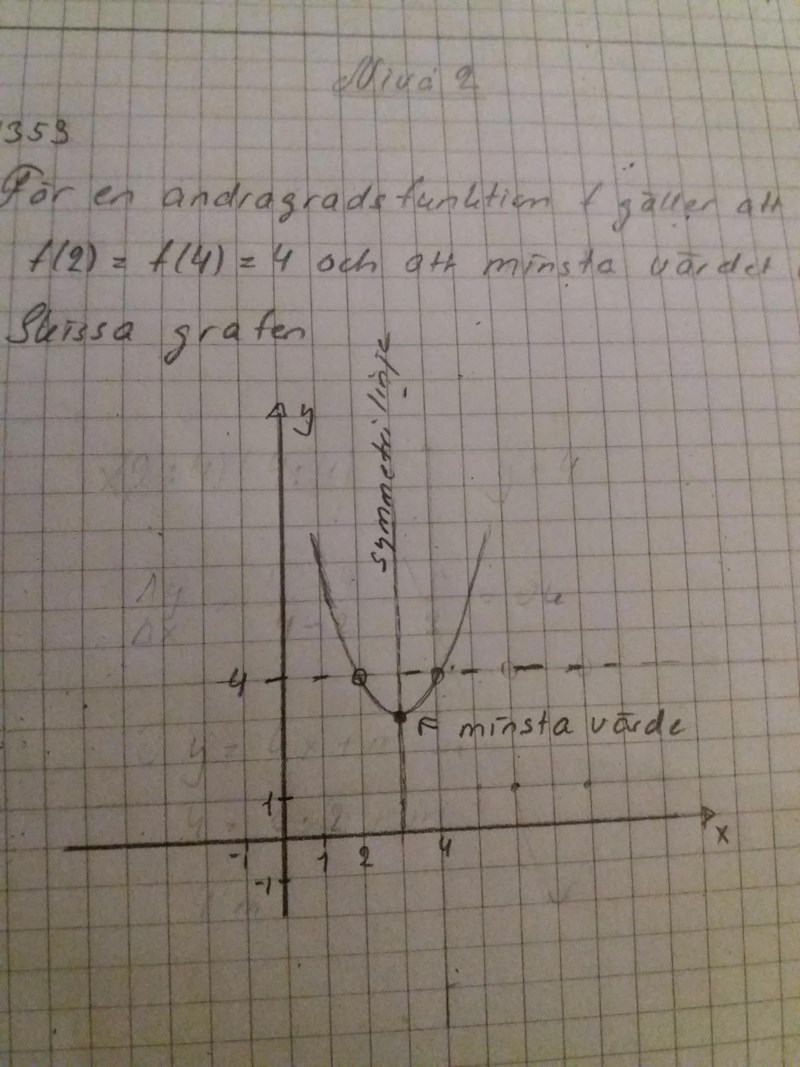 Nivå 2
1359
För en andragradsfunktion f gäller att
f(2) = f(4) = 4 och att minsta värdet
Skissa grafen
y
symmetrilinje
4
minsta värde
1
-1 1 2 4 x
-1